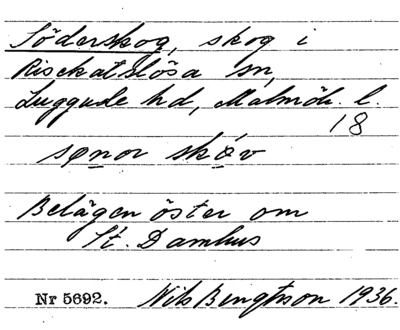 Söderskog, skog i
Risekatslösa sn,
Luggude hd, Malmöh. l.
18
sønor skøv
Belägen öster om
St. Damhus
Nr 5692. Nils Bengtson 1936.